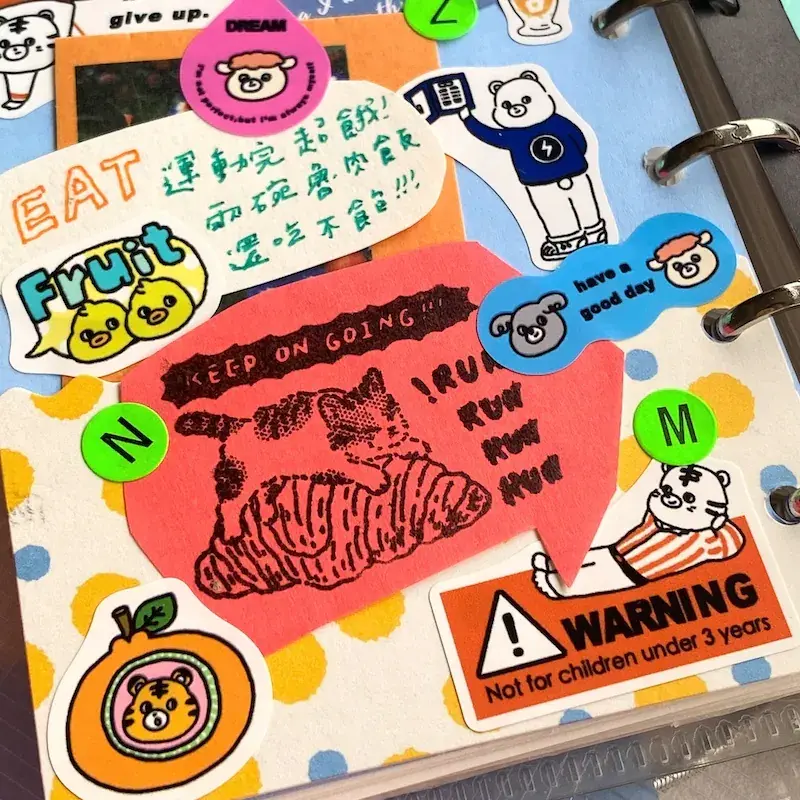 give up.
Z
DREAM
I'm not perfect, but I'm always myself
EAT
運動完超餓!
兩碗魯肉飯
還吃不飽!!!
Fruit
have a
good day
KEEP ON GOING!!!
!RUN
RUN
RUN
RUN
N
M
WARNING
Not for children under 3 years